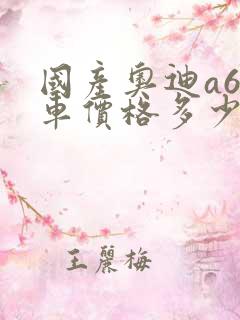 國產奧迪a6
車價格多少
王麗梅